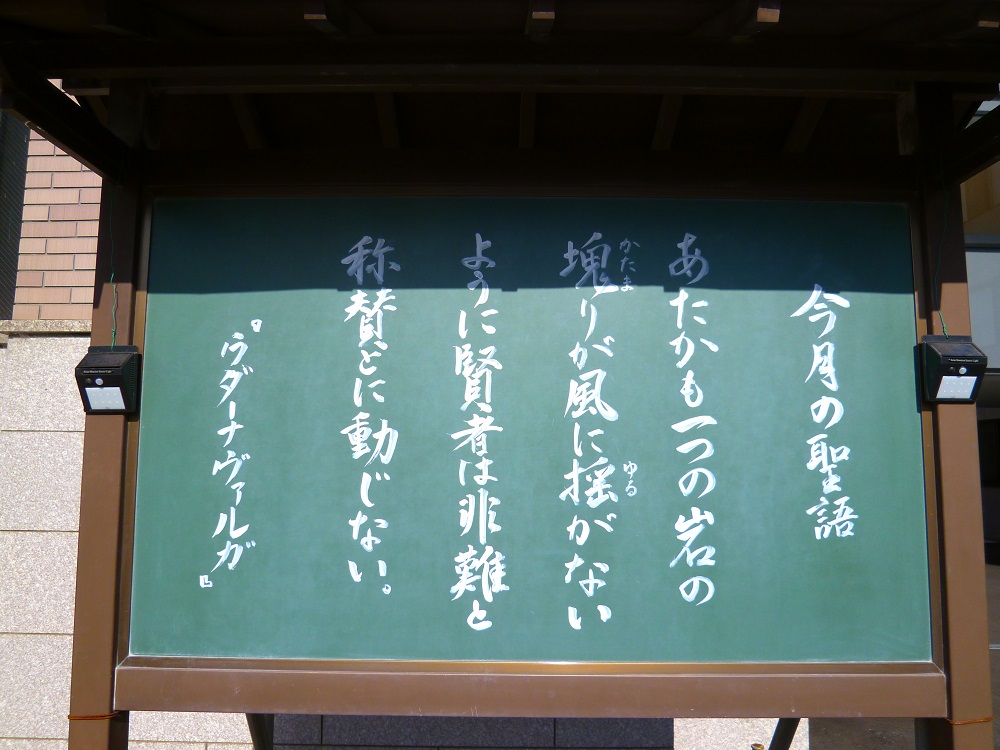 今月の聖語
あたかも一つの岩の
塊りが風に揺がない
かたま
ゆる
ように賢者は非難と
称賛とに動じない。
『ウダーナヴァルガ』